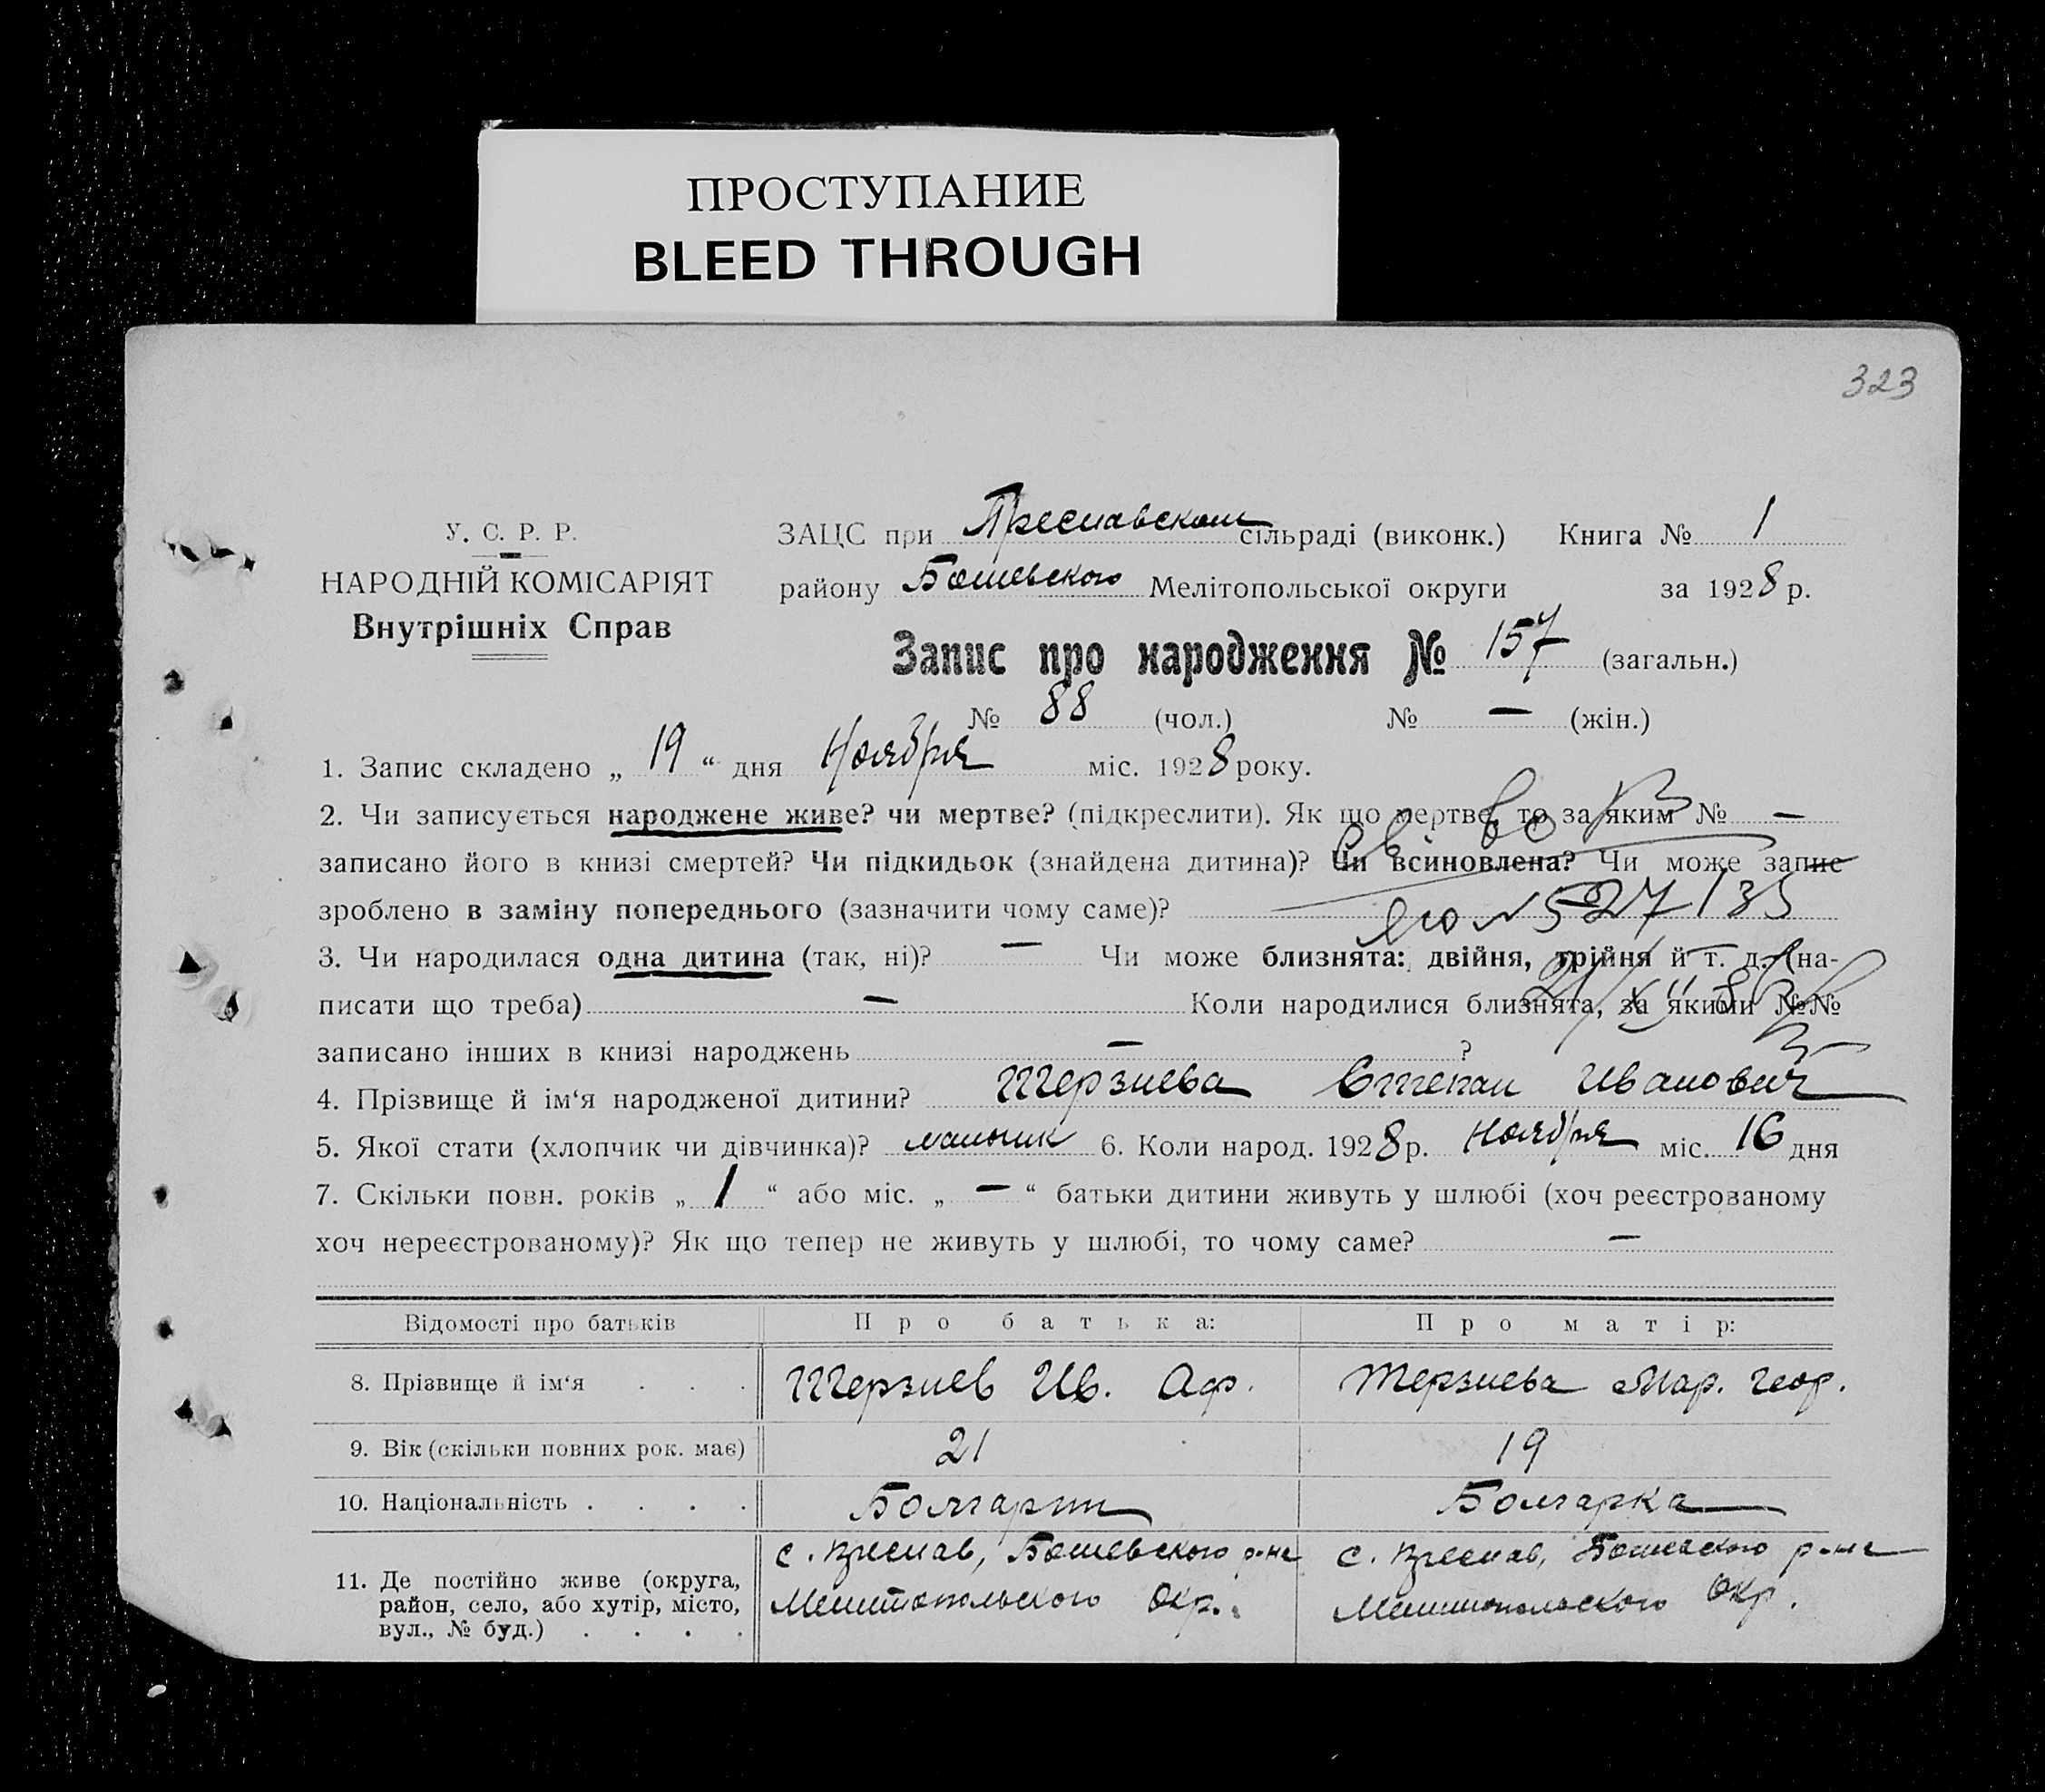 ПРОСТУПАНИЕ
BLEED THROUGH
323
У. С. Р. Р.
НАРОДНІЙ КОМІСАРІЯТ
Внутрішніх Справ
ЗАЦС при Преславском сільраді (виконк.) Книга № 1
району Мелітопольської округи за 1928 р.
Запис про народження № 157 (загальн.)
№ 88 (чол.) № — (жін.)
1. Запис складено „ 19 “ дня Ноября міс. 1928 року.
2. Чи записується народжене живе? чи мертве? (підкреслити). Як що мертве, то за яким № —
записано його в книзі смертей? Чи підкидьок (знайдена дитина)? Чи всиновлена? Чи може запис
зроблено в заміну попереднього (зазначити чому саме)?
св во
№ 527135
3. Чи народилася одна дитина (так, ні)? — Чи може близнята: двійня, трійня й т. д. (на-
писати що треба) — Коли народилися близнята, за якими №№
записано інших в книзі народжень — ?
4. Прізвище й ім‘я народженої дитини? Терзиева Степан Иванович
5. Якої стати (хлопчик чи дівчинка)? мальчик 6. Коли народ. 1928 р. Ноября міс. 16 дня
7. Скільки повн. років „ 1 “ або міс. „ — “ батьки дитини живуть у шлюбі (хоч реєстрованому
хоч нереєстрованому)? Як що тепер не живуть у шлюбі, то чому саме? —
Відомості про батьків Про батька: Про матір:
8. Прізвище й ім‘я . . . Терзиев Ив. Аф. Терзиева Мар. Геор.
9. Вік (скільки повних рок. має) 21 19
10. Національність . . . . Болгарин Болгарка
11. Де постійно живе (округа,
район, село, або хутір, місто,
вул., № буд.) . . . .
с. Преслав, р-на
Мелитопольского Окр.
с. Преслав, р-на
Мелитопольского Окр.